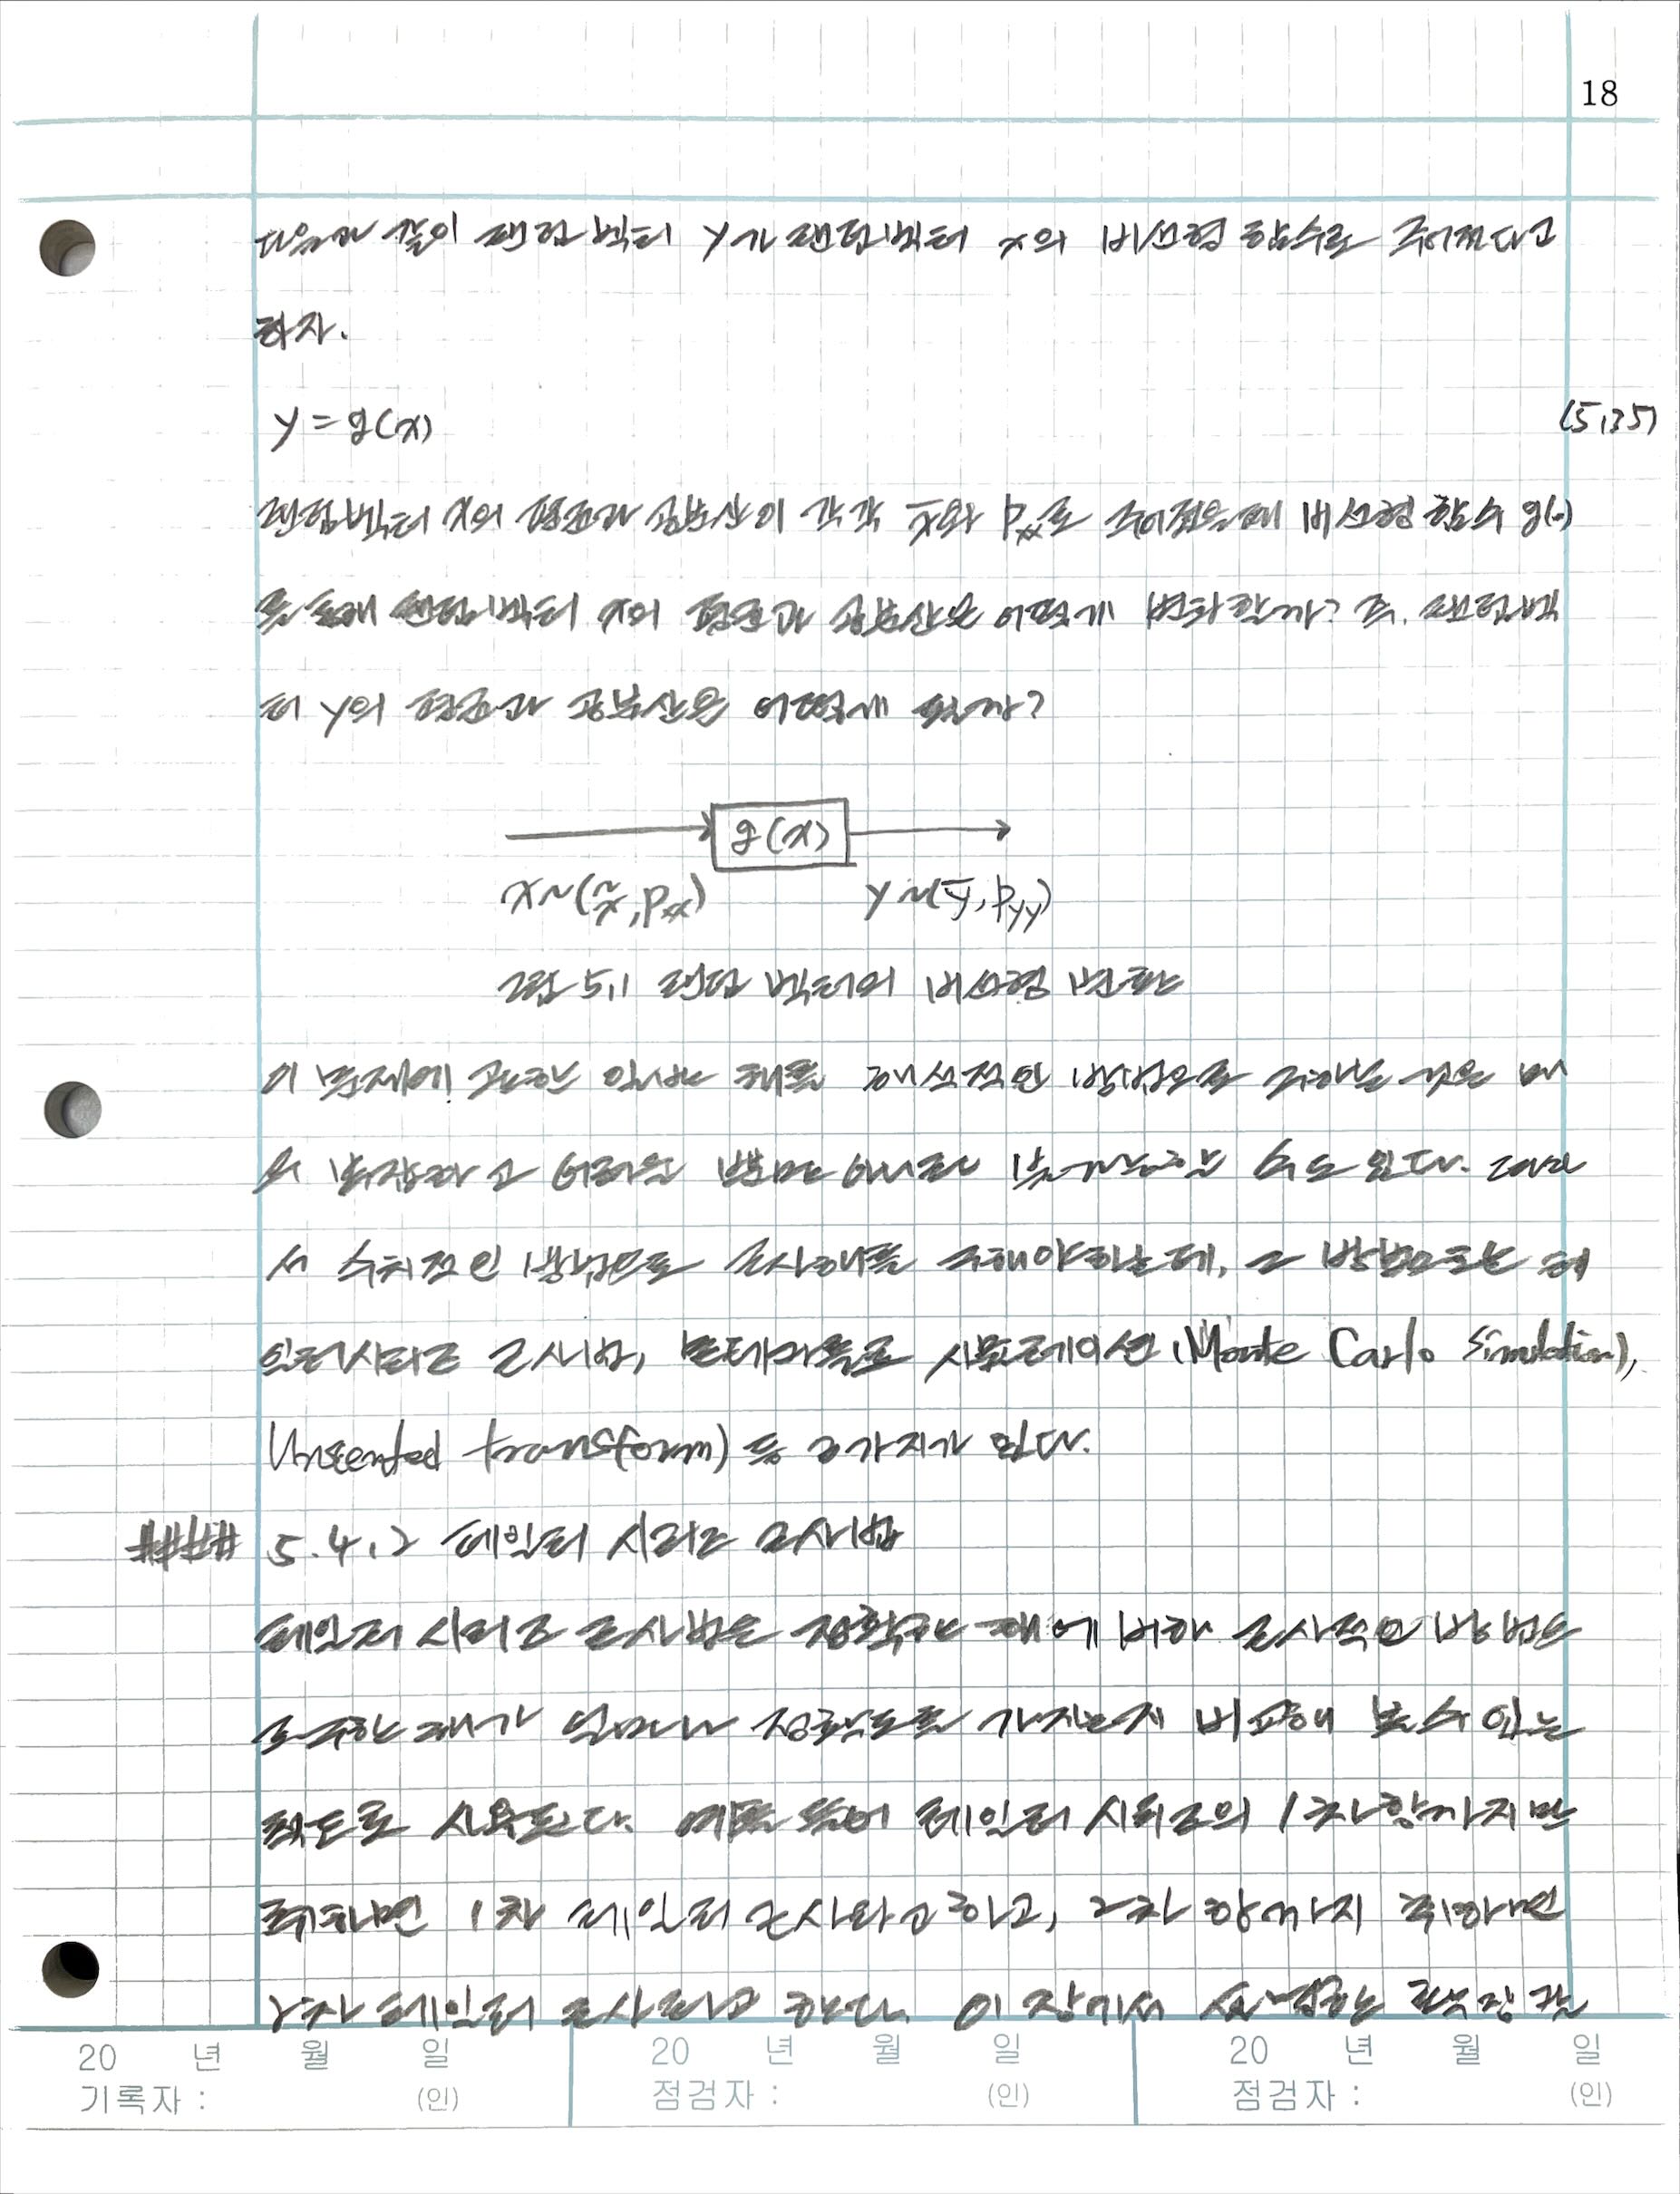 18
다음과 같이 랜덤벡터 y가 랜덤벡터 x의 비선형 함수로 주어졌다고
하자.
y = g(x) (5.35)
랜덤벡터 x의 평균과 공분산이 각각 x̄와 Pxx로 주어졌을때 비선형 함수 g(·)
를 통해 랜덤벡터 x의 평균과 공분산은 어떻게 변화할까? 즉, 랜덤벡
터 y의 평균과 공분산은 어떻게 될까?
g(x)
x~(x̃, Pxx) y~(ȳ, Pyy)
그림 5.1 랜덤 벡터의 비선형 변환
이 문제에 관한 일반 해를 해석적인 방법으로 구하는 것은 매
우 복잡하고 어려울 뿐만 아니라 불가능할 수도 있다. 따라
서 수치적인 방법으로 근사해를 구해야하는데, 그 방법으로는 테
일러시리즈 근사법, 몬테카를로 시뮬레이션 (Monte Carlo simulation),
Unscented transform) 등 3가지가 있다.
#### 5.4.2 테일러 시리즈 근사법
테일러 시리즈 근사법은 정확한 해에 비해 근사적인 방법으
로 구한 해가 얼마나 정확도를 가지는지 비교해 볼 수 있는
척도로 사용된다. 예를 들어 테일러 시리즈의 1차항까지만
취하면 1차 테일러 근사라고 하고, 2차 항까지 취하면
2차 테일러 근사라고 한다. 이 장에서 설명하는
20 년 월 일 20 년 월 일 20 년 월 일
기록자 : (인) 점검자 : (인) 점검자 : (인)